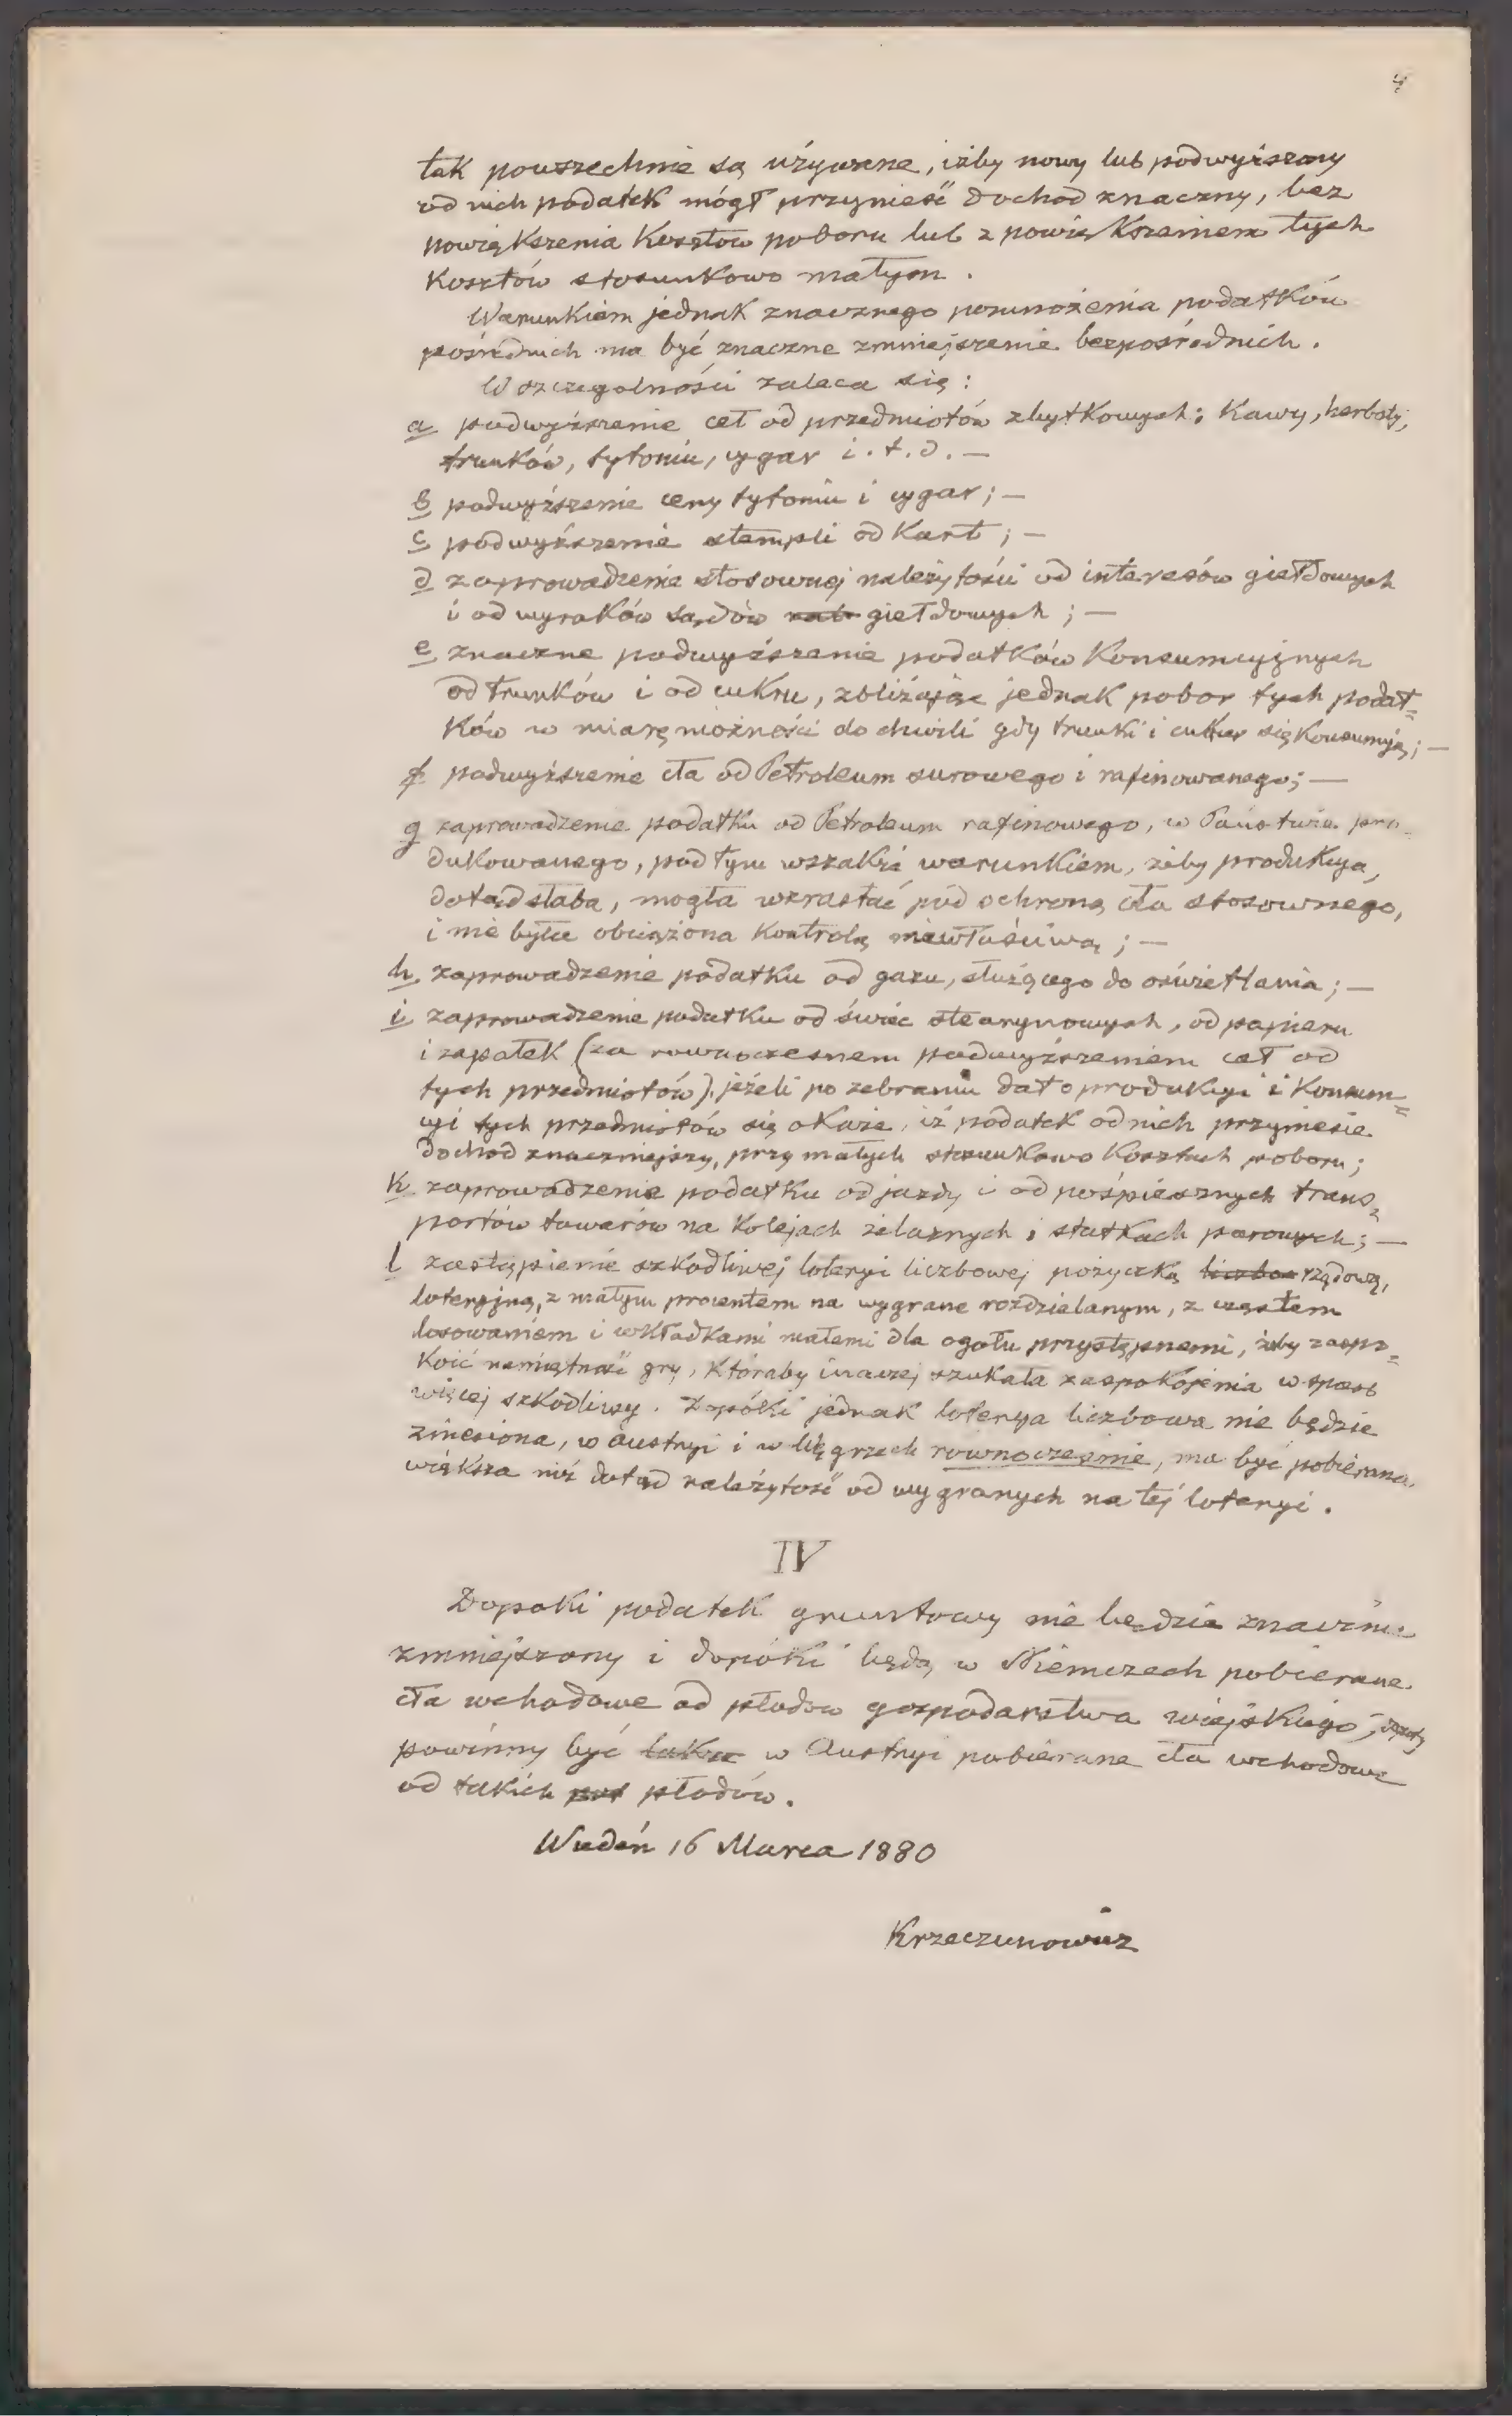 4
tak powszechnie są używane, iżby nowy lub podwyższony
od nich podatek mógł przynieść dochod znaczny, bez
powiększenia Kosztów poboru lub z powiększeniem tych
Kosztów stosunkowo małym.
Warunkiem jednak znacznego pomnożenia podatków
pośrednich ma być znaczne zmniejszenie bezpośrednich.
W szczegolności zaleca się:
a podwyższenie ceł od przedmiotów zbytkowych: Kawy, herbaty,
trunków, tytoniu, cygar i.t.d. —
b podwyższenie ceny tytoniu i cygar; —
c podwyższenie stempli od Kart; —
d zaprowadzenie stosownej należytości od interesów giełdowych
i od wyroków sądów giełdowych; —
e znaczne podwyższenie podatków Konsumcyjnych
od trunków i od cukru, zbliżając jednak pobor tych podat=
ków w miarę możności do chwili gdy trunki i cukier się Konsumują; —
f podwyższenie cła od Petroleum surowego i rafinowanego; —
g zaprowadzenie podatku od Petroleum rafinowego, w Państwie pro=
dukowanego, pod tym wszakże warunkiem, żeby produkcya,
dotąd słaba, mogła wzrastać pod ochroną cła stosownego,
i nie była obciążona Kontrolą niewłaściwą; —
h zaprowadzenie podatku od gazu, służącego do oświetlania; —
i zaprowadzenie podatku od świec stearynowych, od papieru
i zapałek (za rownoczesnem podwyższeniem ceł od
tych przedmiotów), jeżeli po zebraniu dat o produkcyi i Konsum=
cyi tych przedmiotów się okaże, iż podatek od nich przyniesie
dochod znaczniejszy, przy małych stosunkowo Kosztach poboru;
k zaprowadzenie podatku od jazdy i od pośpiesznych trans=
portów towarów na Kolejach żelaznych i statkach parowych; —
l zastąpienie szkodliwej loteryi liczbowej pożyczką liczbow rządową,
loteryjną, z małym procentem na wygrane rozdzielanym, z częstem
losowaniem i wkładkami małemi dla ogołu przystępnemi, żeby zaspo=
Koić namiętność gry, Któraby inaczej szukała zaspokojenia w sposob
więcej szkodliwy. Dopóki jednak loterya liczbowa nie będzie
zniesiona, w Austryi i w Węgrzech rownocześnie, ma być pobierana
większa niż dotąd należytość od wygranych na tej loteryi.
IV
Dopoki podatek gruntowy nie będzie znacznie
zmniejszony i dopóki będą w Niemczech pobierane
cła wchodowe od płodow gospodarstwa wiejskiego,
powinny być także w Austryi pobierane cła wchodowe
od takich płodów.
Wiedeń 16 Marca 1880
Krzeczunowicz